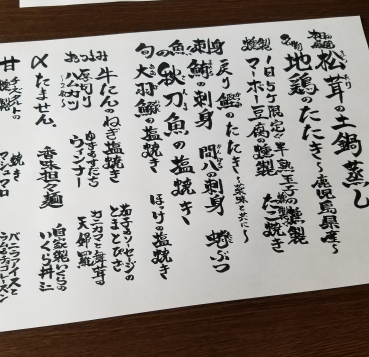 松茸の土鍋蒸し
名物 地鶏のたたき〜鹿児島県産〜
燻製 1日5ケ限定! 半熟玉子の燻製
マーボー豆腐の燻製 たこ焼き
戻り鰹のたたき〜薬味と共に〜
刺 鯵の刺身 間八の刺身 蛸ぶつ
魚 秋刀魚の塩焼き
旬 大羽鰯の塩焼き ほっけの塩焼き
牛たんのねぎ塩焼き
おつまみ ゆずすだちウィンナー
厚切りハムカツ
〆 たません 香味担々麺
甘 チーズケーキの燻製 焼きマシュマロ
あらびきソーセージのとまとピザ
カニカマと舞茸の天婦羅
自家製いくらのいくら丼ミニ
バニラアイスとラムチョコレーズン